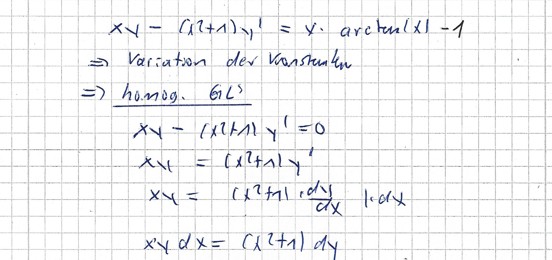 xy - (x²+1)y' = x · arctan(x) - 1
⇒ Variation der Konstanten
⇒ homog. GLS
xy - (x²+1) y' = 0
xy = (x²+1) y'
xy = (x²+1) · dy/dx |·dx
xy dx = (x²+1) dy